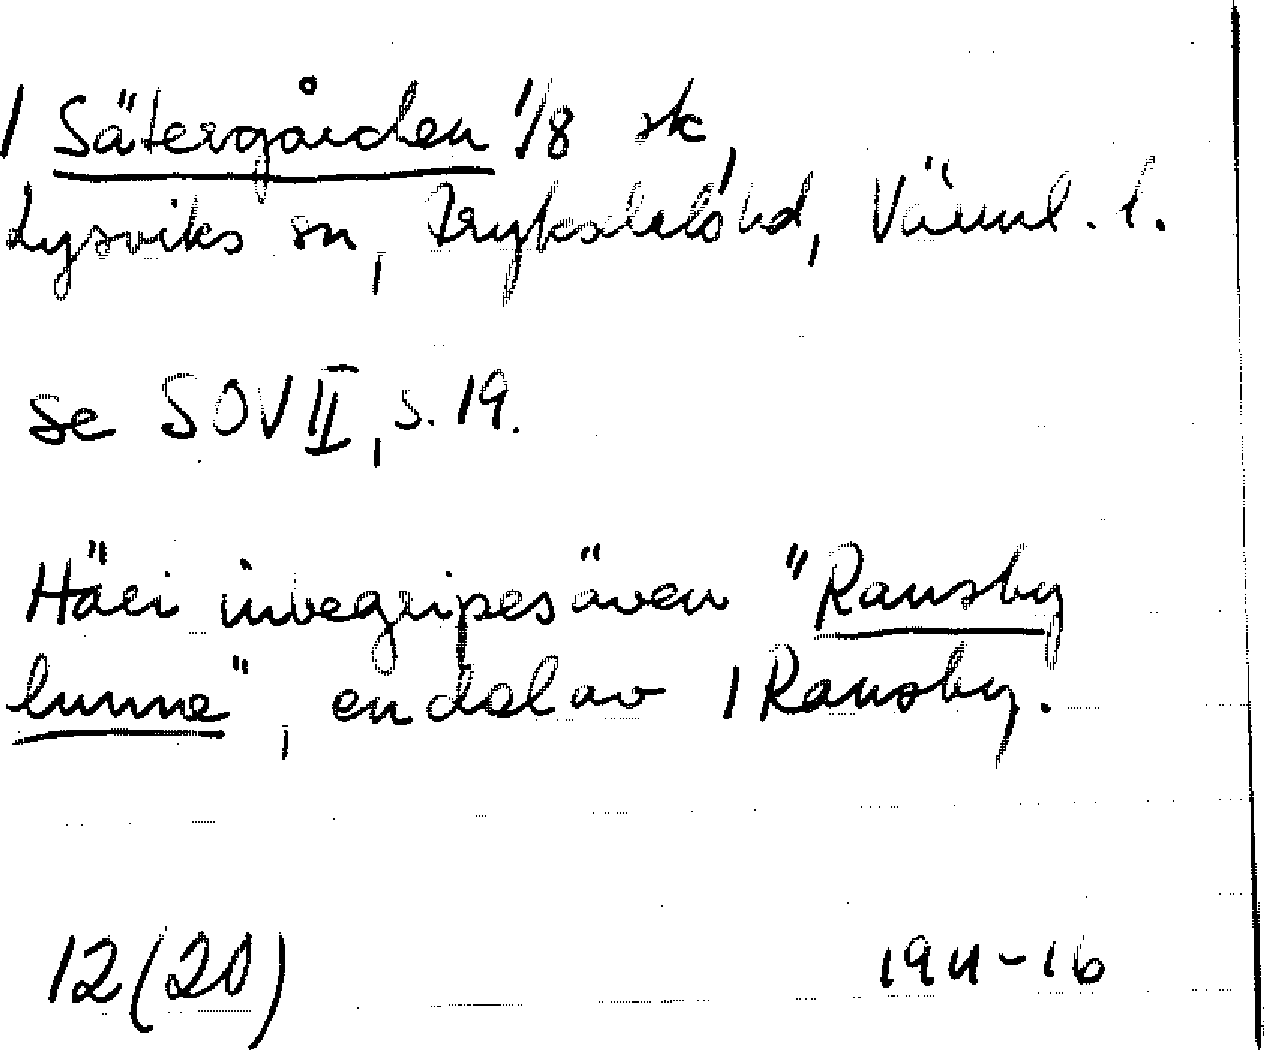 1 Sätergården 1/8 sk,
Lysviks sn, Fryksdals hd, Värml. l.
se SOV II, s. 19.
Häri inbegripes även "Ransby
lunne", en del av 1 Ransby.
12 (20) 1911-16